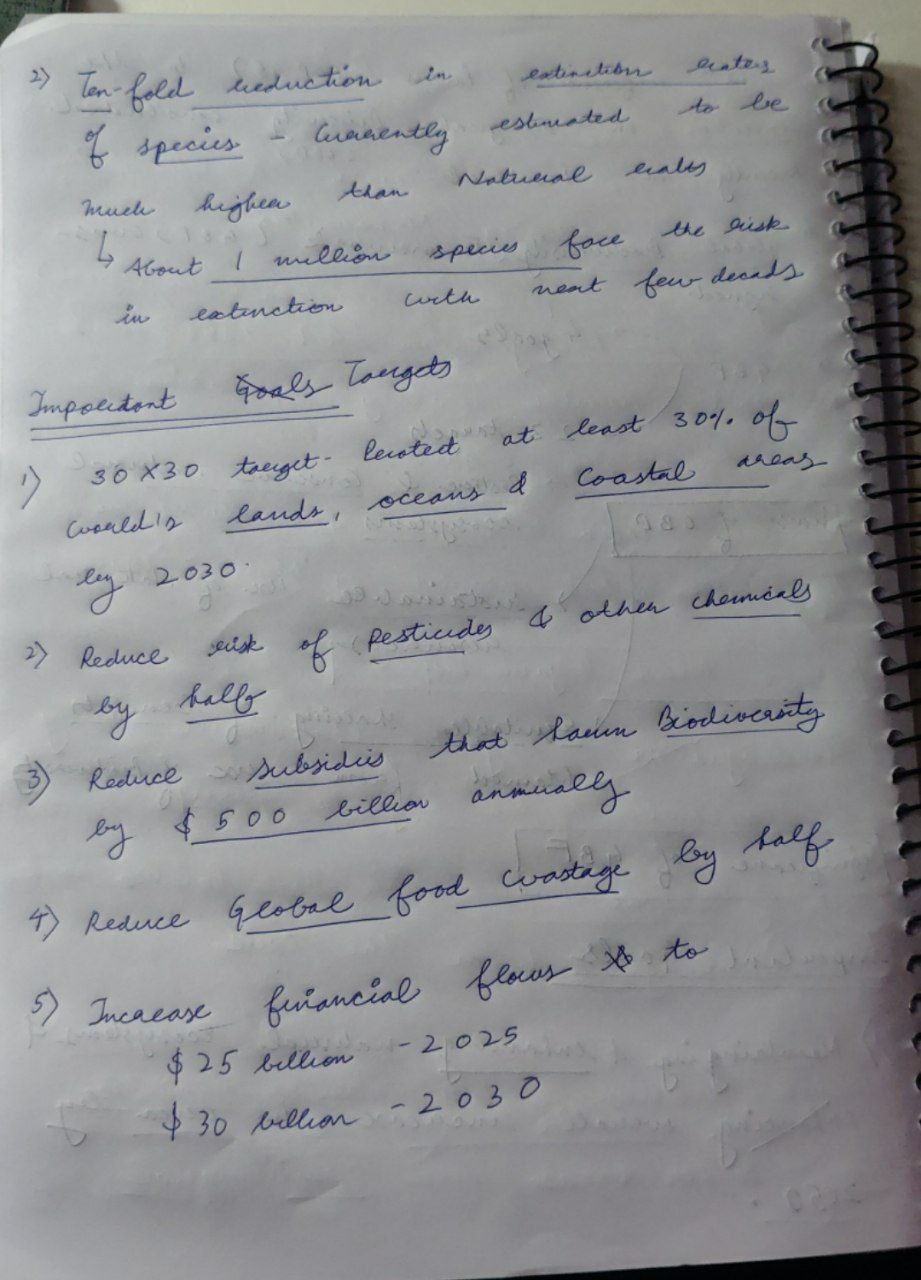 2) Ten-fold reduction in extinction rates
of species - Currently estimated to be
much higher than Natural rates
↳ About 1 million species face the risk
in extinction with next few decads
Important Goals Targets
1) 30X30 target - Protect at least 30% of
world's lands, oceans & coastal areas
by 2030.
2) Reduce risk of pesticides & other chemicals
by half
3) Reduce subsidies that harm Biodiversity
by $500 billion annually
4) Reduce Global food wastage by half
5) Increase financial flows to
$25 billion - 2025
$30 billion - 2030